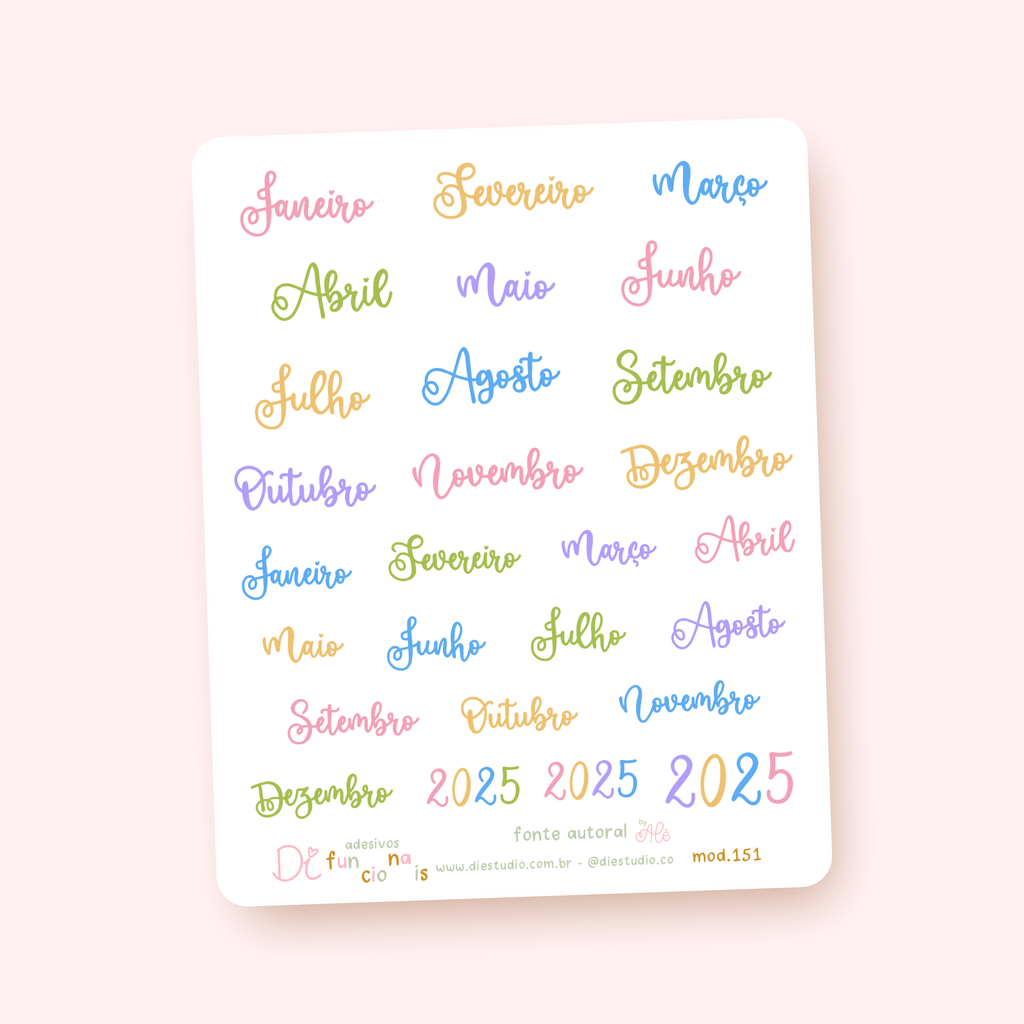 Janeiro Fevereiro Março
Abril Maio Junho
Julho Agosto Setembro
Outubro Novembro Dezembro
Janeiro Fevereiro Março Abril
Maio Junho Julho Agosto
Setembro Outubro Novembro
Dezembro 2025 2025 2025
fonte autoral by Alê
Di adesivos funcionais
www.diestudio.com.br - @diestudio.co mod.151